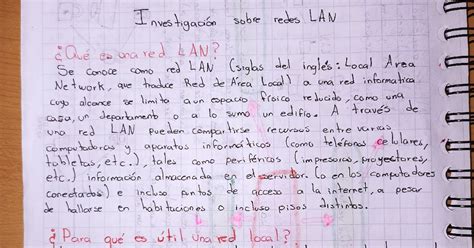 Investigación sobre redes LAN
¿Qué es una red LAN?
Se conoce como red LAN (siglas del inglés: Local Area
Network, que traduce Red de Área Local) a una red informática
cuyo alcance se limita a un espacio físico reducido, como una
casa, un departamento o a lo sumo un edificio. A través de
una red LAN pueden compartirse recursos entre varias
computadoras y aparatos informáticos (como teléfonos celulares,
tabletas, etc.), tales como periféricos (impresoras, proyectores,
etc.) información almacenada en el servidor (o en los computadores
conectados) e incluso puntos de acceso a la internet, a pesar
de hallarse en habitaciones o incluso pisos distintos.
¿Para qué es útil una red local?